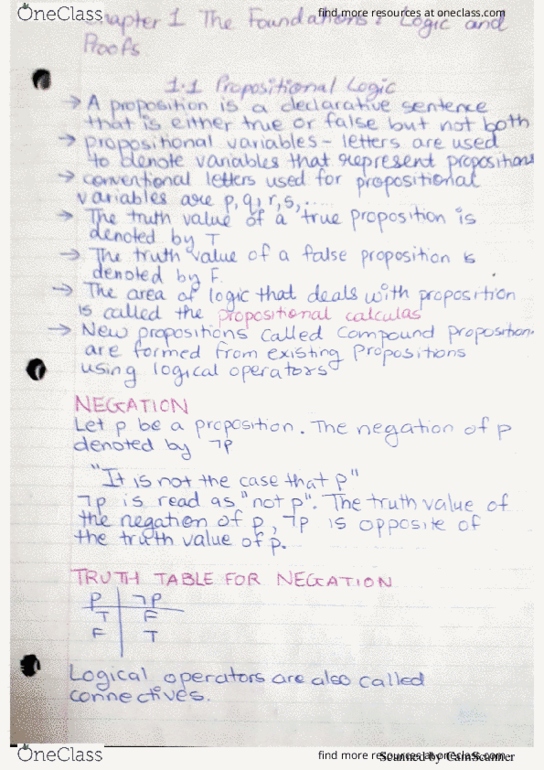 OneClass
find more resources at oneclass.com
Chapter 1 The Foundations: Logic and
Proofs
1.1 Propositional Logic
→ A proposition is a declarative sentence
that is either true or false but not both
→ propositional variables - letters are used
to denote variables that represent propositions
→ conventional letters used for propositional
variables are p,q,r,s,....
→ The truth value of a true proposition is
denoted by T
→ The truth value of a false proposition is
denoted by F.
→ The area of logic that deals with proposition
is called the propositional calculas
→ New propositions called Compound proposition
are formed from existing Propositions
using logical operators
NEGATION
Let p be a proposition. The negation of p
denoted by ¬p
"It is not the case that p"
¬p is read as "not p". The truth value of
the negation of p, ¬p is opposite of
the truth value of p.
TRUTH TABLE FOR NEGATION
P ¬P
T F
F T
Logical operators are also called
connectives.
OneClass
find more resources at oneclass.com
Scanned by CamScanner